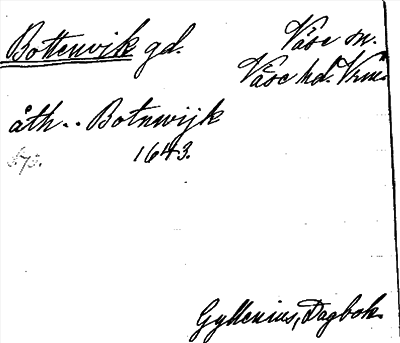 Bottenvik gd.
Väse sn.
Väse hd. Vrm.
åth.. Botnwijk
1643.
Gyllenius, Dagbok.